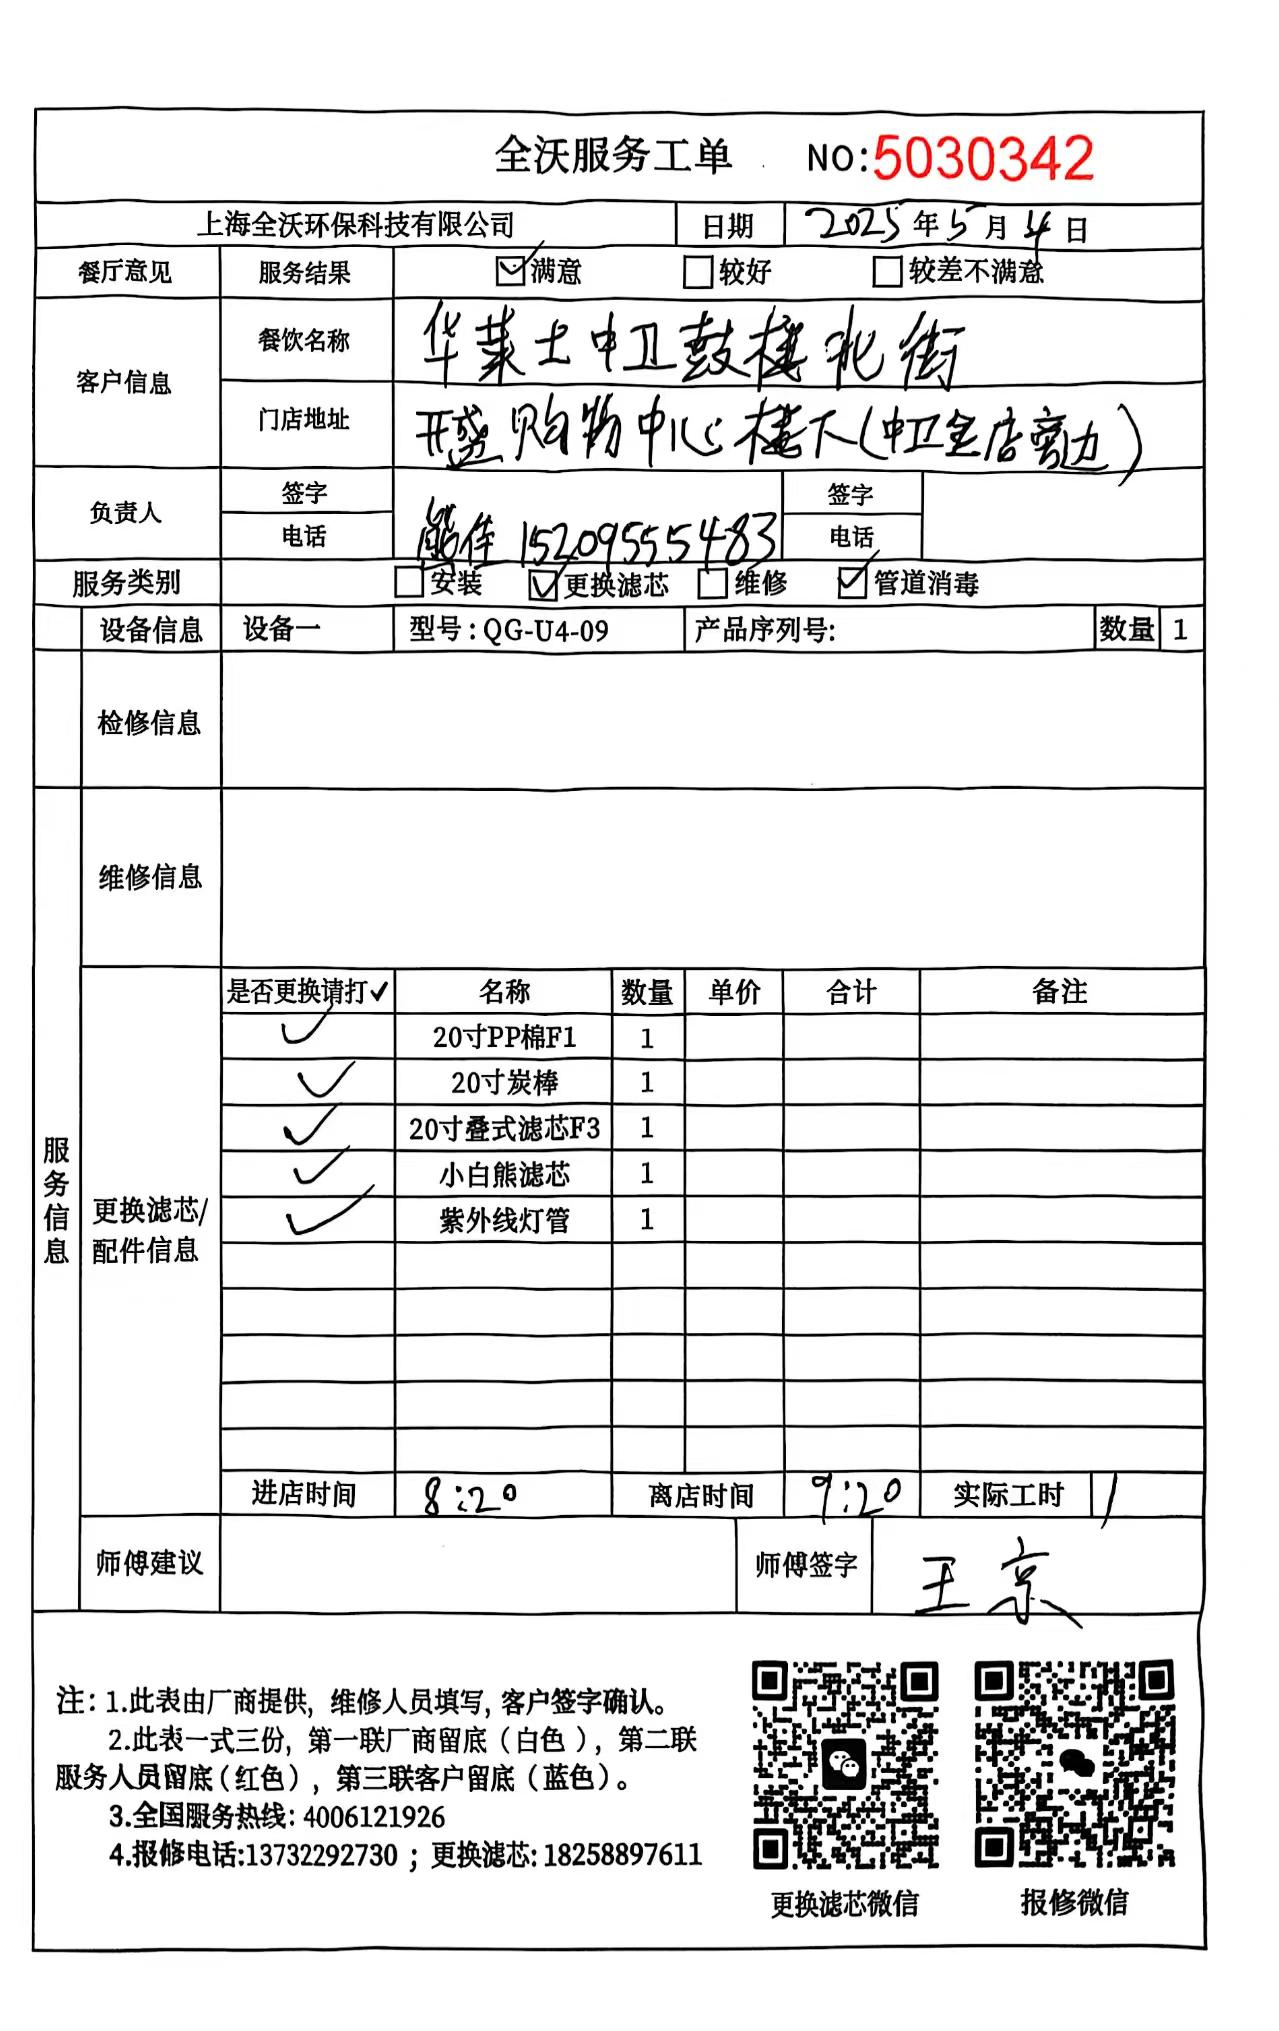 全沃服务工单 NO:5030342
上海全沃环保科技有限公司 日期 2025年5月4日
餐厅意见 服务结果 ☑满意 □较好 □较差不满意
客户信息 餐饮名称 华莱士中卫鼓楼北街
门店地址 开盛购物中心楼下(中卫全店旁边)
负责人 签字 签字
电话 熊佳 15209555483 电话
服务类别 □安装 ☑更换滤芯 □维修 ☑管道消毒
设备信息 设备一 型号:QG-U4-09 产品序列号: 数量 1
检修信息
维修信息
服务信息
更换滤芯/
配件信息
是否更换请打✓ 名称 数量 单价 合计 备注
✓ 20寸PP棉F1 1
✓ 20寸炭棒 1
✓ 20寸叠式滤芯F3 1
✓ 小白熊滤芯 1
✓ 紫外线灯管 1
进店时间 8:20 离店时间 9:20 实际工时 1
师傅建议 师傅签字 王京
注: 1.此表由厂商提供, 维修人员填写, 客户签字确认。
2.此表一式三份, 第一联厂商留底(白色), 第二联
服务人员留底(红色), 第三联客户留底(蓝色)。
3.全国服务热线: 4006121926
4.报修电话:13732292730 ; 更换滤芯: 18258897611
更换滤芯微信 报修微信